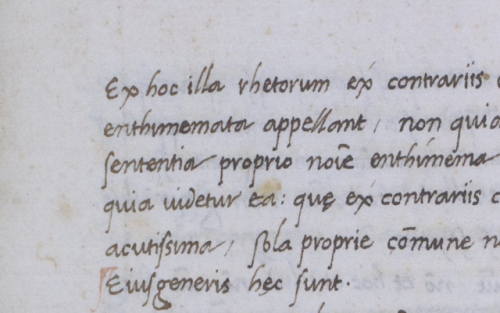 Ex hoc illa rhetorum ex contrariis
enthimemata appellant, non quia
sententia proprio noīe enthimema
quia uidetur ea: quę ex contrariis
acutissima, sola proprie cōmune
Eiusgeneris hęc sunt.